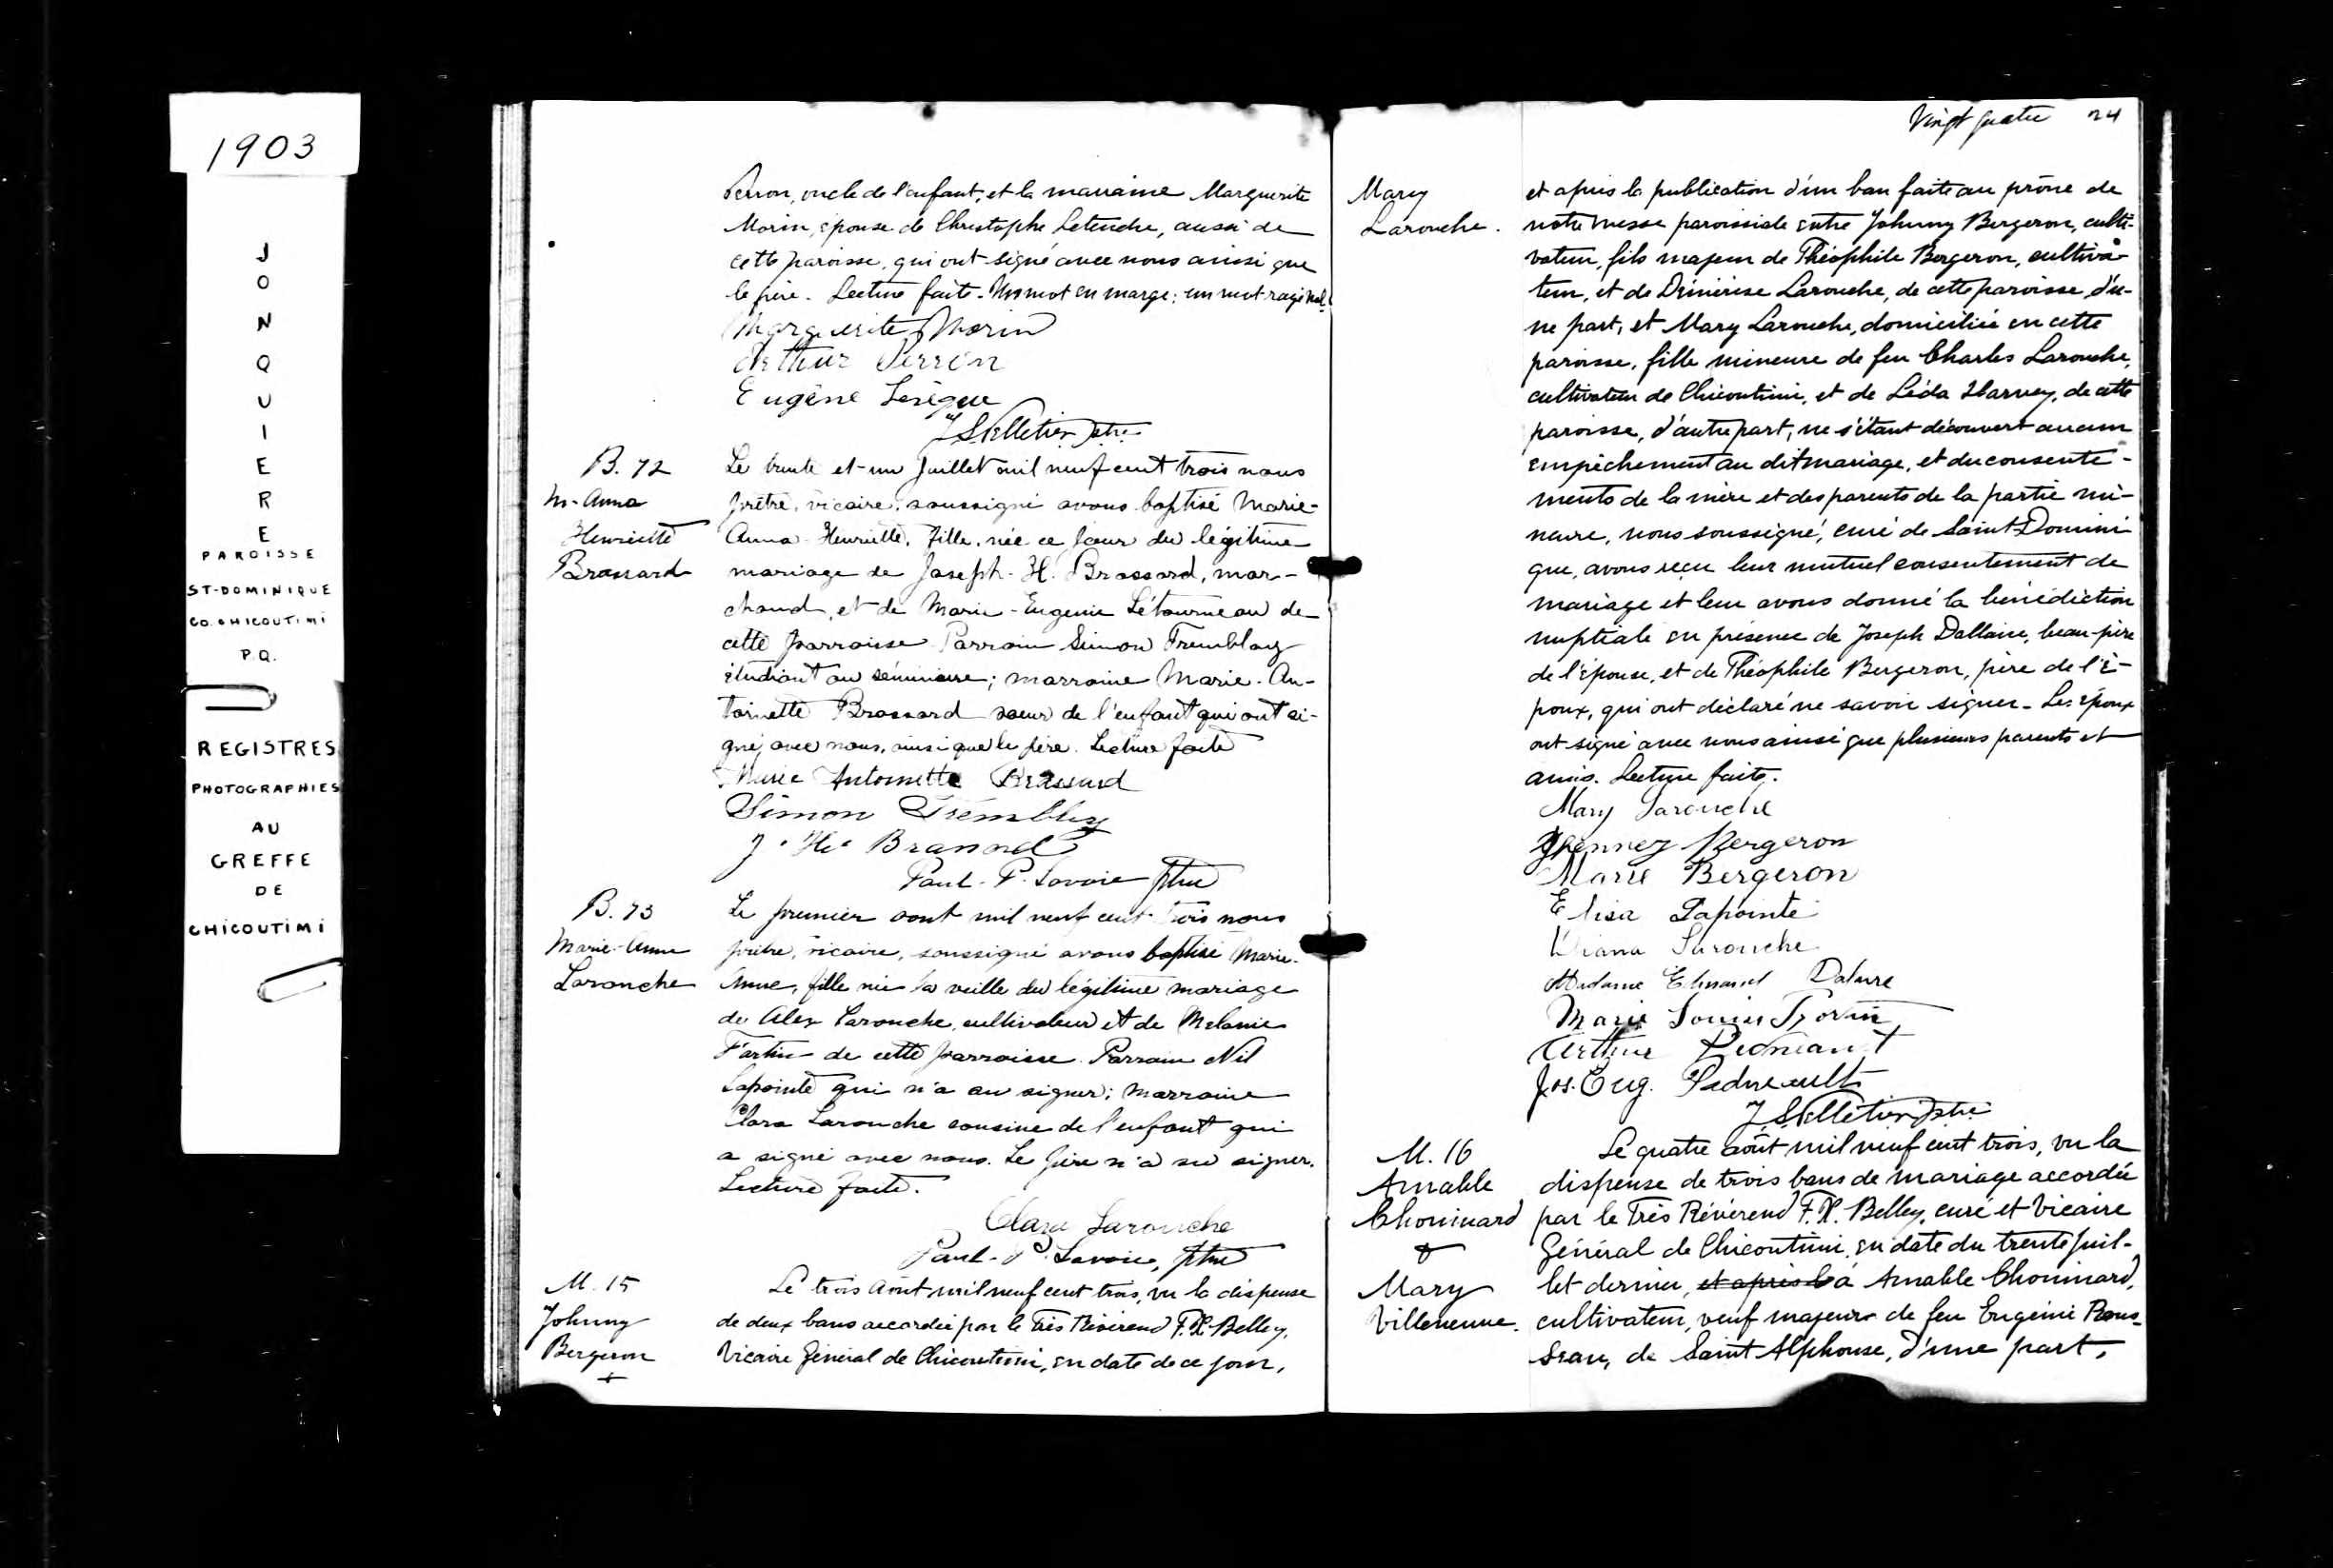 1903
JONQUIERE
PAROISSE
ST-DOMINIQUE
CO. CHICOUTIMI
P.Q.
REGISTRES
PHOTOGRAPHIES
AU
GREFFE
DE
CHICOUTIMI
Perron, oncle de l'enfant, et la marraine Marguerite
Morin, épouse de Christophe, aussi de
cette paroisse, qui ont signé avec nous ainsi que
le père. Lecture faite. Un mot en marge; un mot rayé nul.
Marguerite Morin
Arthur Perron
Eugène
J S Pelletier Ptre
B. 72
M-Anna
Henriette
Brassard
Le trente et un Juillet mil neuf cent trois nous
prêtre, vicaire, soussigné avons baptisé Marie-
Anna Henriette, fille, née ce jour du légitime
mariage de Joseph-H. Brassard, mar-
chand, et de Marie-Eugenie Létourneau de
cette parroisse Parrain Simon Tremblay
étudiant au séminaire; marraine Marie-An-
toinette Brassard soeur de l'enfant qui ont si-
gné avec nous, ainsi que le père. Lecture faite
Marie Antoinette Brassard
Simon Tremblay
J. H. Brassard
Paul-P. Savoie ptre
B. 73
Marie-Anne
Larouche
Le premier aout mil neuf cent trois nous
prêtre, vicaire, soussigné avons baptisé Marie-
Anne, fille née la veille du légitime mariage
de Alex Larouche, cultivateur et de Melanie
Fortin de cette parroisse. Parrain Nil
Lapointe qui n'a su signer; marraine
Clara Larouche cousine de l'enfant qui
a signé avec nous. Le père n'a su signer.
Lecture faite.
Clara Larouche
Paul-P. Savoie, ptre
M. 15
Johnny
Bergeron
+
Le trois Août mil neuf cent trois, vu la dispense
de deux bans accordée par le Très Révérend F.X. Belley,
Vicaire Général de Chicoutimi, en date de ce jour,
Vingt quatre 24
Mary
Larouche.
et après la publication d'un ban faite au prône de
notre messe paroissiale entre Johnny Bergeron, culti-
vateur, fils majeur de Théophile Bergeron, cultiva-
teur, et de Démérise Larouche, de cette paroisse, d'u-
ne part, et Mary Larouche, domiciliée en cette
paroisse, fille mineure de feu Charles Larouche,
cultivateur de Chicoutimi, et de Léda Harvey, de cette
paroisse, d'autre part; ne s'étant découvert aucun
empêchement au dit mariage, et du consente-
ments de la mère et des parents de la partie mi-
neure, nous soussigné, curé de Saint-Domini
que, avons reçu leur mutuel consentement de
mariage et leur avons donné la bénédiction
nuptiale en présence de Joseph Dallaire, beau-père
de l'épouse, et de Théophile Bergeron, père de l'é-
poux, qui ont déclaré ne savoir signer. Les époux
ont signé avec nous ainsi que plusieurs parents et
amis. Lecture faite.
Mary Larouche
Bergeron
Marie Bergeron
Elisa Lapointe
Diana Larouche
Madame
Marie Louise
Arthur
Jos. Eug.
J S Pelletier Ptre
M. 16
Amable
Chouinard
+
Mary
Villeneuve.
Le quatre août mil neuf cent trois, vu la
dispense de trois bans de mariage accordée
par le Très Révérend F.X. Belley, curé et Vicaire
Général de Chicoutimi, en date du trente juil-
let dernier, et après la à Amable Chouinard,
cultivateur, veuf majeur de feu Eugénie Rous-
seau, de Saint Alphonse, d'une part,